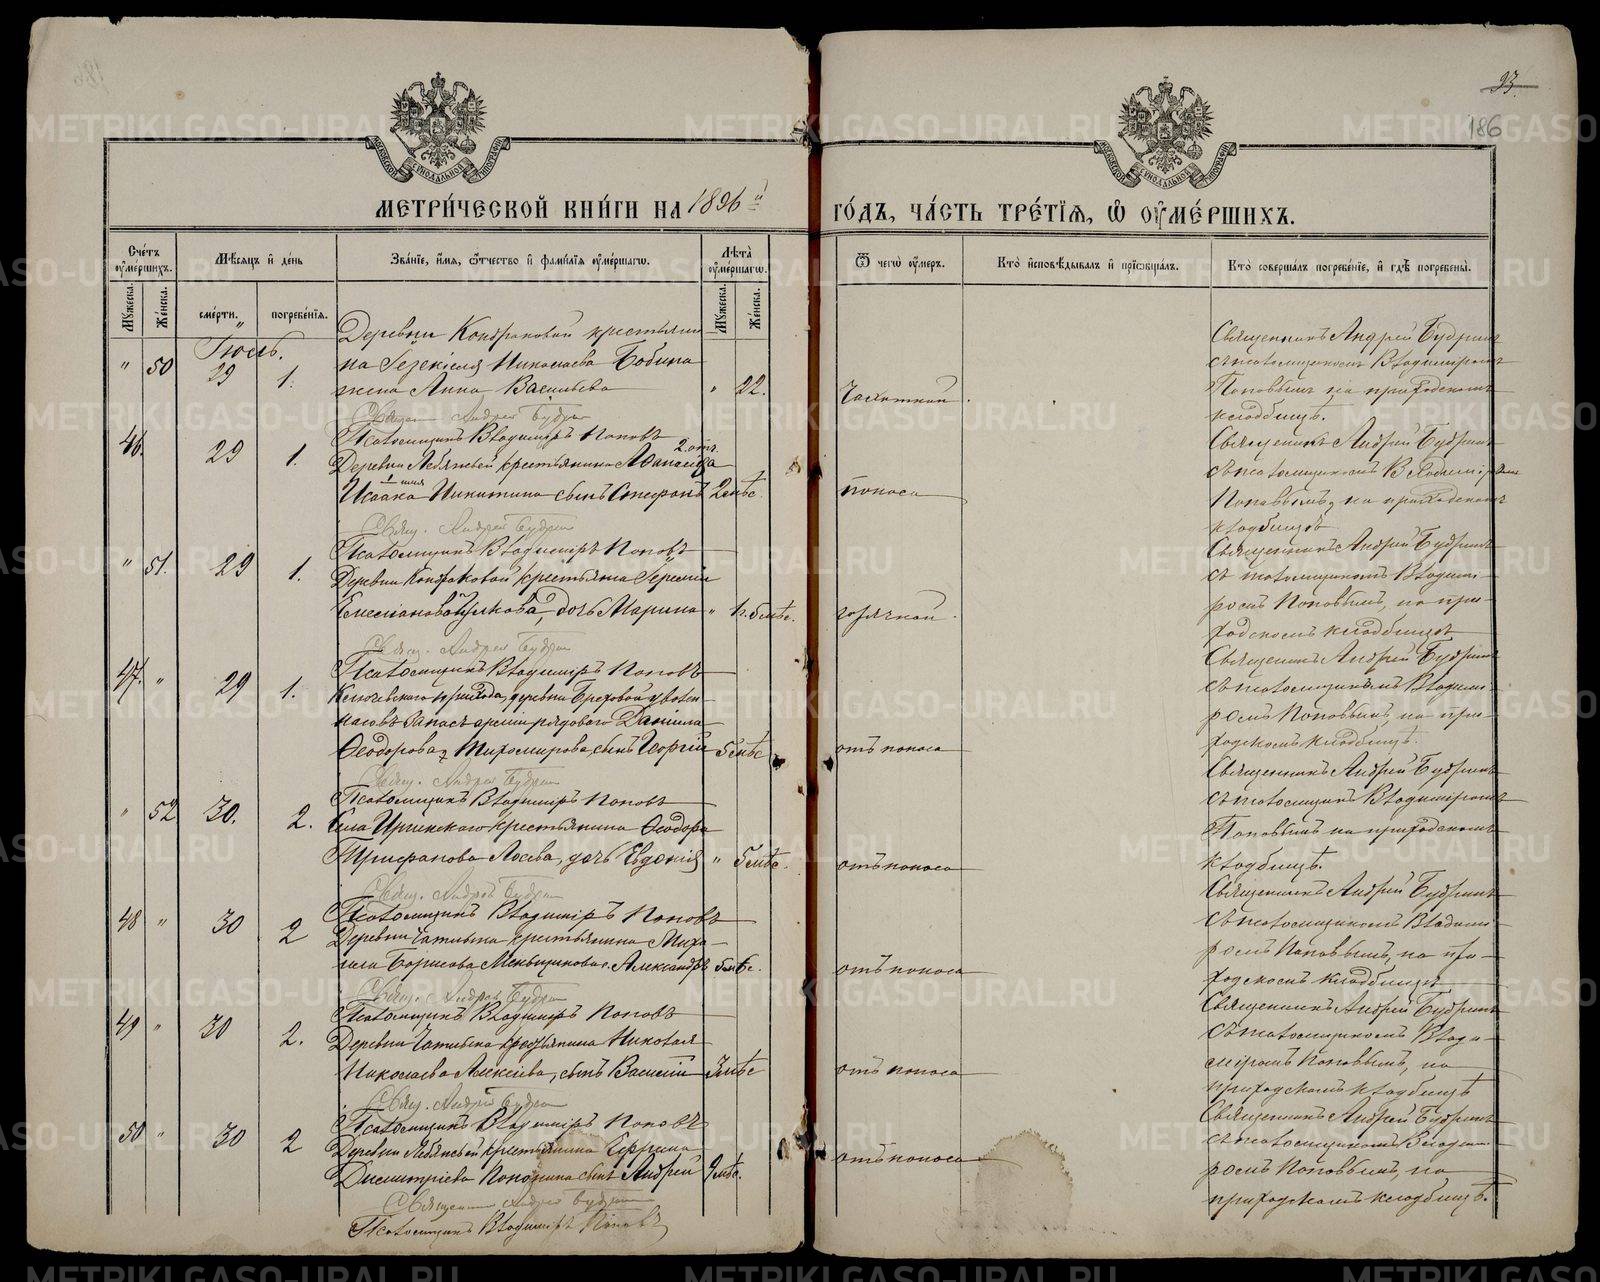 93.
186
МЕТРИ́ЧЕСКОЙ КНИ́ГИ НА 1896й ГО́ДЪ, ЧА́СТЬ ТРЕ́ТІѦ, Ѡ ОУМЕ́РШИХЪ.
Сче́тъ оуме́ршихъ.
Мѣ́сяцъ и день
Зва́нїе, и́мя, ѻ́тчество и фами́лїя оуме́ршагѡ.
Лѣ́та оуме́ршагѡ.
Ѿ чегѡ̀ оу́меръ.
Кто̀ исповѣ́дывалъ и прїѡбща́лъ.
Кто̀ соверша́лъ погребе́нїе, и гдѣ̀ погребены̀.
Му́жеска.
Же́нска.
сме́рти.
погребе́нїя.
Му́жеска.
Же́нска.
Іюль.
" 50 29 1.
Деревни Кондраковой крестьяни
на Іезекіиля Николаева Бобина
жена Анна Васильева " 22.
Чахоткой.
Священникъ Андрей Будринъ
съ псаломщикомъ Владиміромъ
Поповымъ на приходскомъ
кладбищѣ.
Священ. Андрей Будрин
Псаломщикъ Владиміръ Поповъ
46. 29 1.
Деревни Лебяжьей крестьянина
Исаака Никитина сынъ Стефанъ 2 мѣс.
поноса
Священникъ Андрей Будринъ
съ псаломщикомъ Владимі
Поповымъ, на приходскомъ
кладбищѣ
Свящ. Андрей Будрин
Псаломщикъ Владиміръ Поповъ
" 51. 29 1.
Деревни Кондраковой крестьянина
дочь Марина " 1 г. 5 мѣс.
горячкой.
Священникъ Андрей Будринъ
съ псаломщикомъ Владимі-
ромъ Поповымъ, на при-
ходскомъ кладбищѣ
Свящ. Андрей Будрин
Псаломщикъ Владиміръ Поповъ
47. " 29 1.
Ключевскаго прихода, деревни
запас арміи рядового Даніила
Ѳеодорова Тихомирова, сынъ Георгій 5 мѣс
отъ поноса
Священникъ Андрей Будринъ
съ псаломщикомъ Владими-
ромъ Поповымъ, на при-
ходскомъ кладбищѣ.
Свящ. Андрей Будрин
Псаломщикъ Владиміръ Поповъ
" 52 30. 2.
Села Иргинскаго крестьянина Ѳеодора
Трифанова Лосева, дочь Евдокія " 5 мѣс.
отъ поноса
Священникъ Андрей Будринъ
съ псаломщикъ Владиміромъ
Поповымъ на приходскомъ
кладбищѣ.
Свящ. Андрей Будрин
Псаломщикъ Владиміръ Поповъ
48 " 30 2
Деревни Чатлыка крестьянина Миха-
ила Борисова Меньщикова с. Александръ 5 мѣс.
отъ поноса
Священникъ Андрей Будринъ
съ псаломщикомъ Владими-
ромъ Поповымъ, на при-
ходскомъ кладбищѣ
Свящ. Андрей Будрин
Псаломщикъ Владиміръ Поповъ
49 " 30 2.
Деревни Чатлыка крестьянина Николая
Николаева Алексѣева, сынъ Василій 3 мѣс
отъ поноса
Священникъ Андрей Будринъ
съ псаломщикомъ Влади-
міромъ Поповымъ, на
приходскомъ кладбищѣ
Свящ. Андрей Будрин
Псаломщикъ Владиміръ Поповъ
50 " 30 2
Деревни Лебяжьей крестьянина Ефрема
Дмитріева сынъ Андрей 9 мѣс.
отъ поноса
Священникъ Андрей Будринъ
съ псаломщикомъ Влади
ромъ Поповымъ, на
приходскомъ кладбищѣ.
Священник Андрей Будрин
Псаломщикъ Владиміръ Поповъ
METRIKI.GASO-URAL.RU